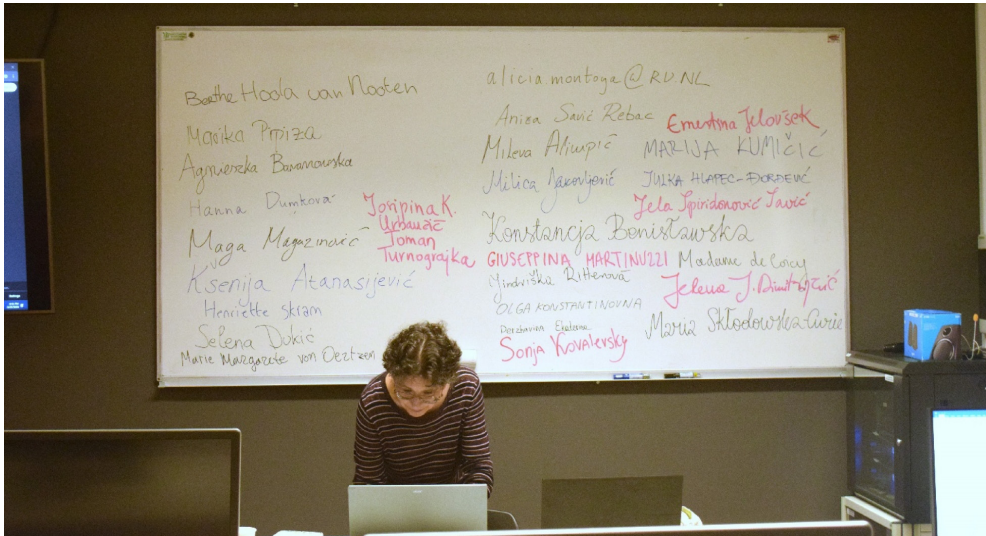 Barthe Hoola van Nooten
Marika Prpiza
Agnieszka Baranowska
Hanna Dumkova
Maga Magazinović
Ksenija Atanasijević
Henriette Skram
Selena Dukić
Marie Margarete von Oertzen
Josipina K.
Urbančič
Toman
Turnograjka
alicia.montoya@RU.NL
Anica Savić Rebac
Ernestina Jelovšek
Mileva Alimpić
MARIJA KUMIČIĆ
Milica Jakovljević
JULKA HLAPEC-ĐORĐEVIĆ
Jela Spiridonović Savić
Konstancja Benisławska
GIUSEPPINA MARTINUZZI
Madame de
OLGA KONSTANTINOVNA
Jelena J. Dimitrijević
Ekaterina
Maria Skłodowska-Curie
Sonja Kovalevsky